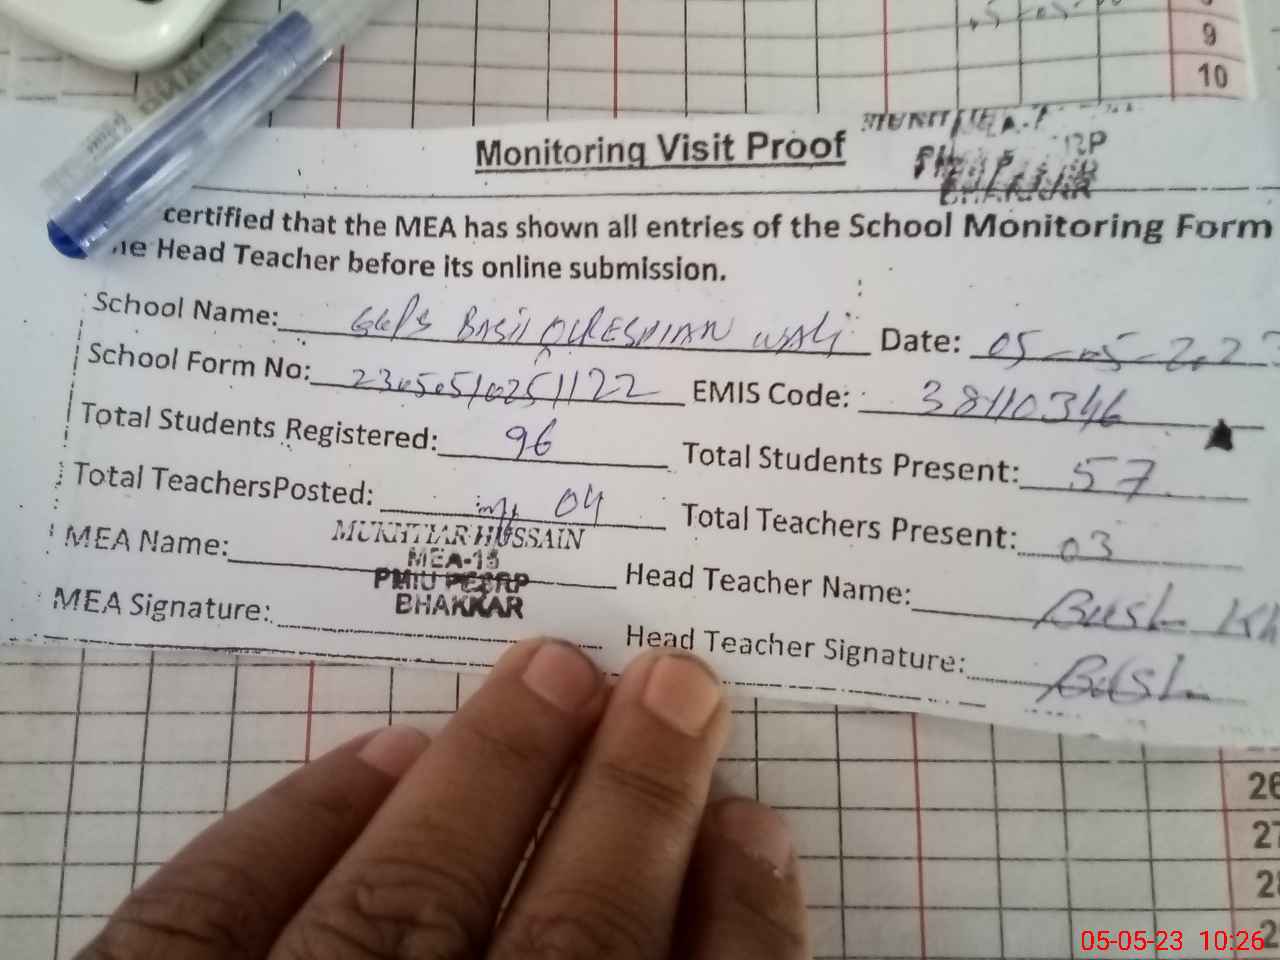 9
10
Monitoring Visit Proof
certified that the MEA has shown all entries of the School Monitoring Form
Head Teacher before its online submission.
School Name: GGPS BASTI QURESHIAN WALI Date: 05-05-202
School Form No: EMIS Code: 38110346
Total Students Registered: 96 Total Students Present: 57
Total TeachersPosted: 04 Total Teachers Present: 03
MEA Name: MUKHTIAR HUSSAIN Head Teacher Name:
MEA-15
PMIU PESRP
BHAKKAR
MEA Signature: Head Teacher Signature:
26
27
05-05-23 10:26